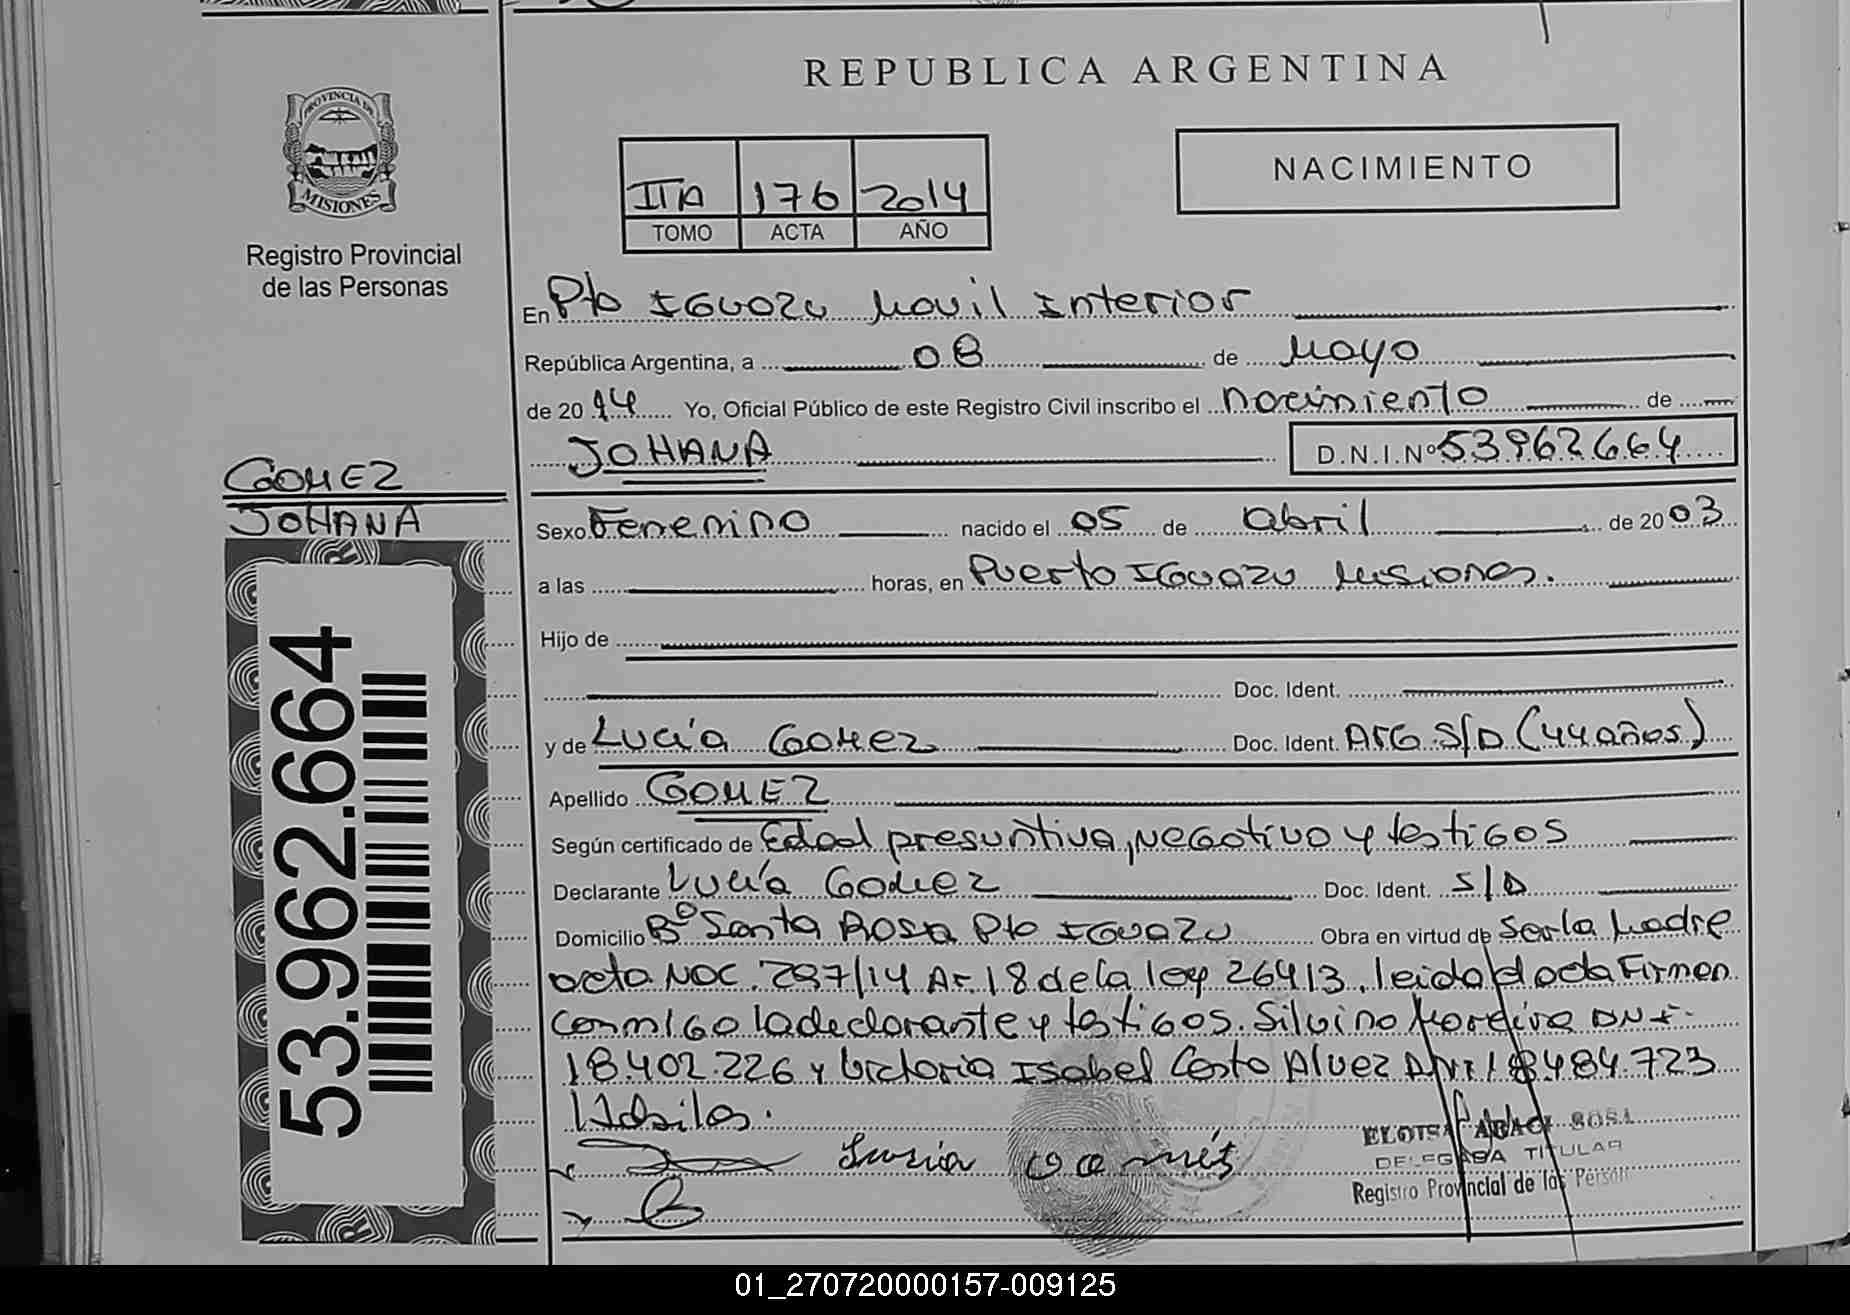 REPUBLICA ARGENTINA
PROVINCIA DE
MISIONES
Registro Provincial
de las Personas
NACIMIENTO
IIA 176 2014
TOMO ACTA AÑO
En Pto IGuazu Movil Interior
República Argentina, a 08 de Mayo
de 2014 Yo, Oficial Público de este Registro Civil inscribo el nacimiento de
JOHANA D.N.I.Nº 53962664
GOMEZ
JOHANA
Sexo Femenino nacido el 05 de abril de 2003
a las horas, en Puerto IGuazu Misiones.
Hijo de
Doc. Ident.
y de Lucía GOMez Doc. Ident. ArG S/D (44 años)
Apellido GOMEZ
Según certificado de Edad presuntiva, NeGativo y testiGos
Declarante Lucía Gomez Doc. Ident. S/D
Domicilio Bº Santa Rosa Pto IGuazu Obra en virtud de Ser la Madre
acta NAC. 297/14 Ar. 18 de la ley 26413. leida el acta Firman
ConmiGo la declarante y testiGos. Silvino Moreira DNI.
18.402.226 y Victoria Isabel Costa Alvez DNI 18484.723
53.962.664
ELOISA SOSA
DELEGADA TITULAR
Registro Provincial de las Person
01_270720000157-009125